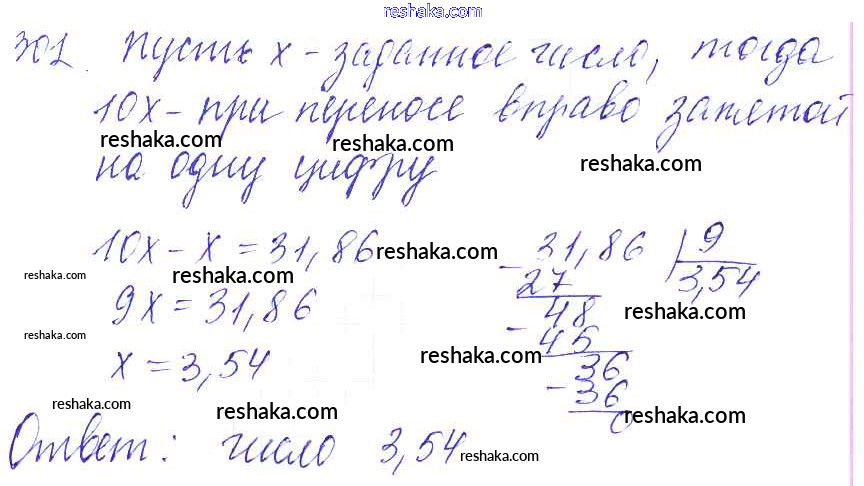 reshaka.com
301. Пусть x - заданное число, тогда
10x - при переносе вправо запятой
reshaka.com reshaka.com
на одну цифру reshaka.com
10x - x = 31,86 reshaka.com - 31,86 | 9
reshaka.com reshaka.com 27 3,54
9x = 31,86 - 48 reshaka.com
reshaka.com 45
x = 3,54 reshaka.com 36
- 36
reshaka.com reshaka.com 0 reshaka.com
Ответ: число 3,54 reshaka.com